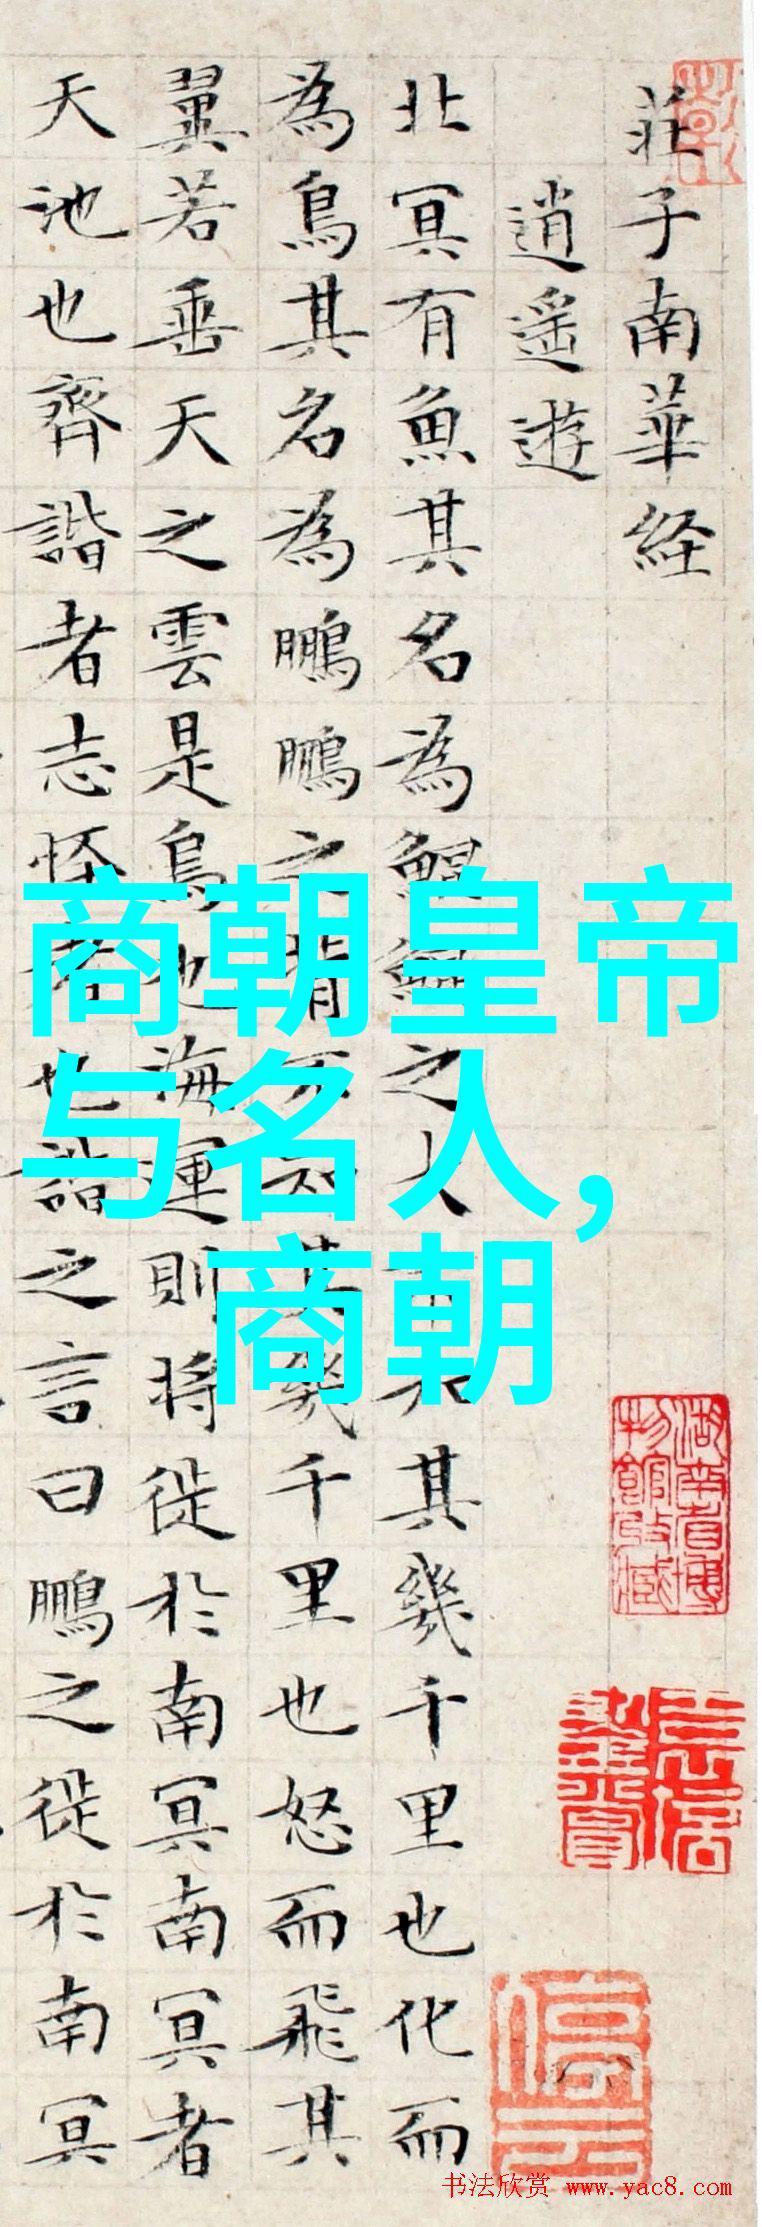 莊子南華経
逍遥遊
北冥有魚其名為鯤鯤之大不知其幾千里也化而
為鳥其名為鵬鵬之背不知其幾千里也怒而飛其
翼若垂天之雲是鳥也海運則将徙於南冥南冥者
天池也齊諧者志怪者也諧之言曰鵬之徙於南冥
商朝皇帝
与名人,
商朝
湖南省博
物館收藏
书法欣赏 www.yac8.com